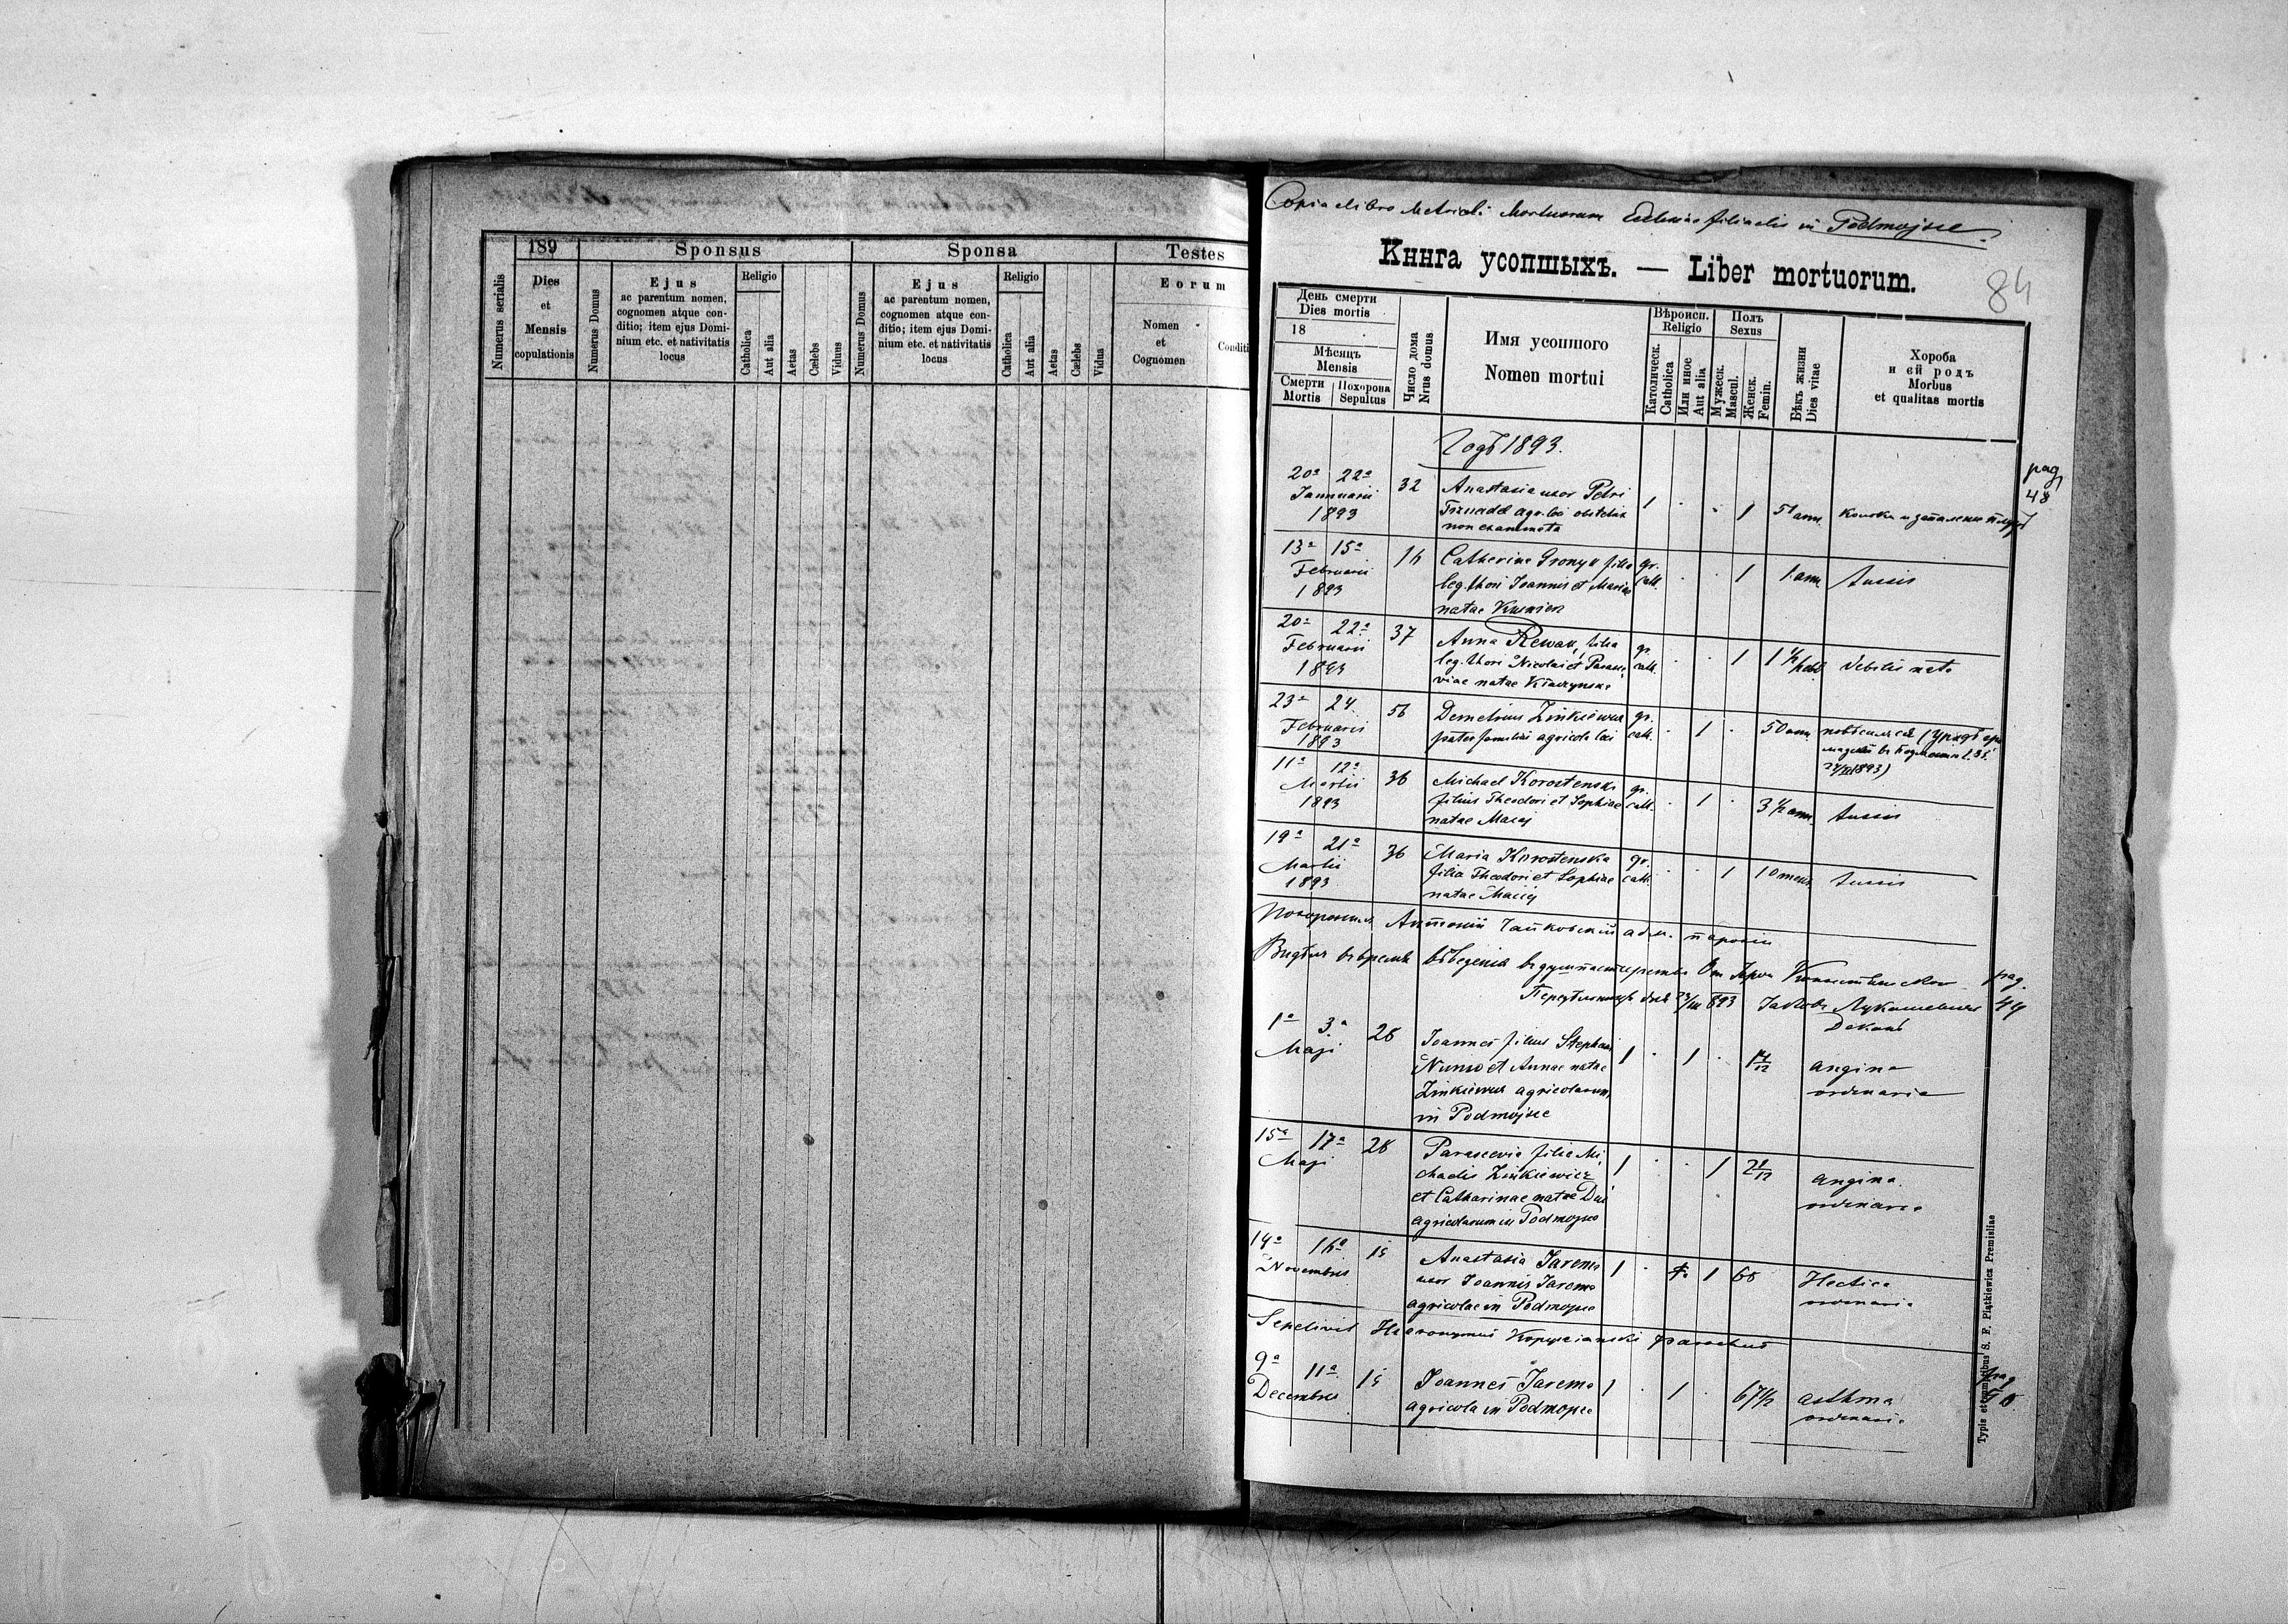 189
Sponsus
Sponsa
Testes
Numerus serialis
Dies
et
Mensis
copulationis
Numerus Domus
Ejus
ac parentum nomen,
cognomen atque con-
ditio; item ejus Domi-
nium etc. et nativitatis
locus
Religio
Catholica
Aut alia
Aetas
Cælebs
Viduus
Numerus Domus
Ejus
ac parentum nomen,
cognomen atque con-
ditio; item ejus Domi-
nium etc. et nativitatis
locus
Religio
Catholica
Aut alia
Aetas
Cælebs
Vidua
Eorum
Nomen
et
Cognomen
Conditi
Copia libro Metricali Mortuorum Ecclesiae filialis in Podmojsce
Книга усопшыхъ. — Liber mortuorum.
84
День смерти
Dies mortis
18
Мѣсяцъ
Mensis
Смерти
Mortis
Похорона
Sepultus
Число дома
Nrus domus
Имя усопшого
Nomen mortui
Вѣроисп.
Religio
Католическ.
Catholica
Или иное
Aut alia
Полъ
Sexus
Мужеск.
Mascul.
Женск.
Femin.
Вѣкъ жизни
Dies vitae
Хороба
и ей родъ
Morbus
et qualitas mortis
Годъ 1893.
pag
48
20a 22a 32 Anastasia uxor Petri 1 1 51 ann.
Januarii
1893
agr. loci obstetrix
non examinata
13a 15a Catherina filia gr. 1 1 ann tussis
Februarii leg. thori Joannis et Mariae cath.
1893 natae
20a 22a 37 Anna Rewak, filia gr. 1 debilis nata
Februarii leg. thori Nicolai et Parasce cath.
1893 viae natae
23a 24 56 Demetrius Zinkiewicz gr. 1 50 ann
Februarii pater familiae agricola loci cath.
1893
1893)
11a 12a 36 Michael Korostenski gr. 1 3 1/2 ann. tussis
Martii filius Theodori et Sophiae cath.
1893 natae Maciej
19a 21a 36 Maria Korostenska gr. 1 10 mens. tussis
Martii filia Theodori et Sophiae cath.
1893 natae Maciej
Похоронилъ Антоній адм. парохіи
pag.
49
Деканъ
1a 3a 28 Joannes filius Stephani 1 1 angina
Maji et Annae natae ordinaria
Zinkiewicz agricolarum
in Podmojsce
15a 17a 28 Parascevia filia Mi 1 1 angina
Maji chaelis Zinkiewicz ordinaria
et Catharinae natae
agricolarum in Podmojsce
14a 16a 15 Anastasia Jarema 1 1 68 Hectica
Novembris uxor Joannis Jarema ordinaria
agricolae in Podmojsce
Sepelivit Hieronymus parochus
9a 11a 15 Joannes Jarema 1 1 67 1/2 asthma
Decembris agricola in Podmojsce ordinaria
Typis et sumptibus S. F. Piątkiewicz Premisliae